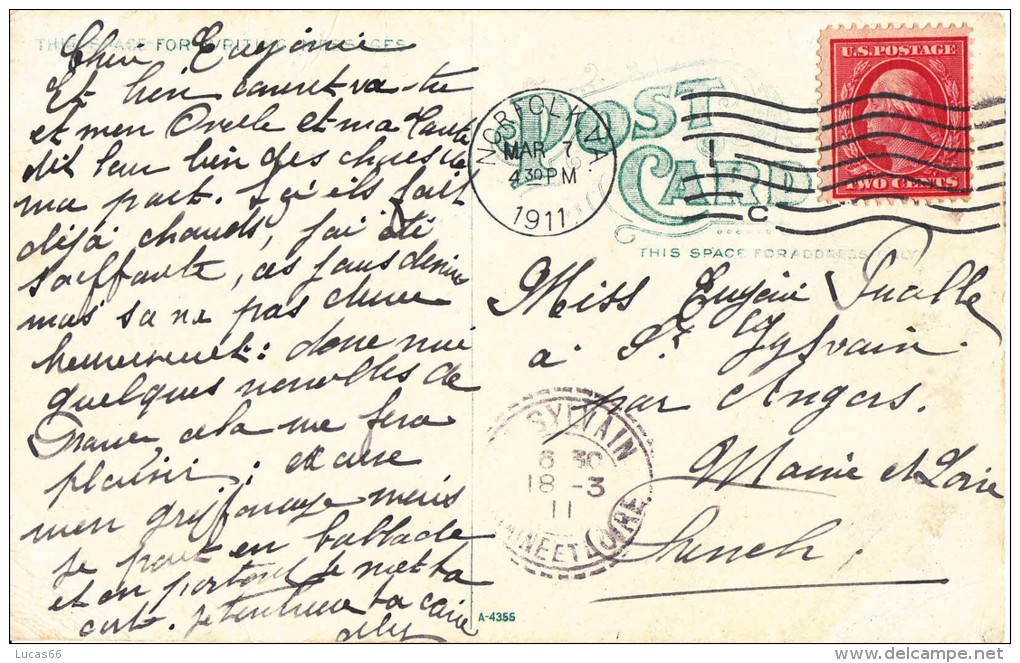 THIS SPACE FOR WRITING MESSAGES
Cher Eugénie
Et bien comment va-tu
et mon Oncle et ma Tante
dit leur bien des choses de
ma part. Ici ils fait
déjà chauds, j'ai été
souffrante, ces jours
mas sa ne pas
heureusement: donne moi
quelques nouvelles de
cela me fera
plaisir; excuse
mon griffonage mais
je part en ballade
et en portant je met ta
carte. je
POST
CARD
NORFOLK, VA.
MAR 7
4 30 PM
1911
U.S. POSTAGE
TWO CENTS
THIS SPACE FOR ADDRESS ONLY
Miss Eugénie
à St Sylvain
par Angers.
Maine et Loire
French.
SYLVAIN
6 30
18 -3
11
MAINE ET LOIRE
A-4355
Lucas66
www.delcampe.net